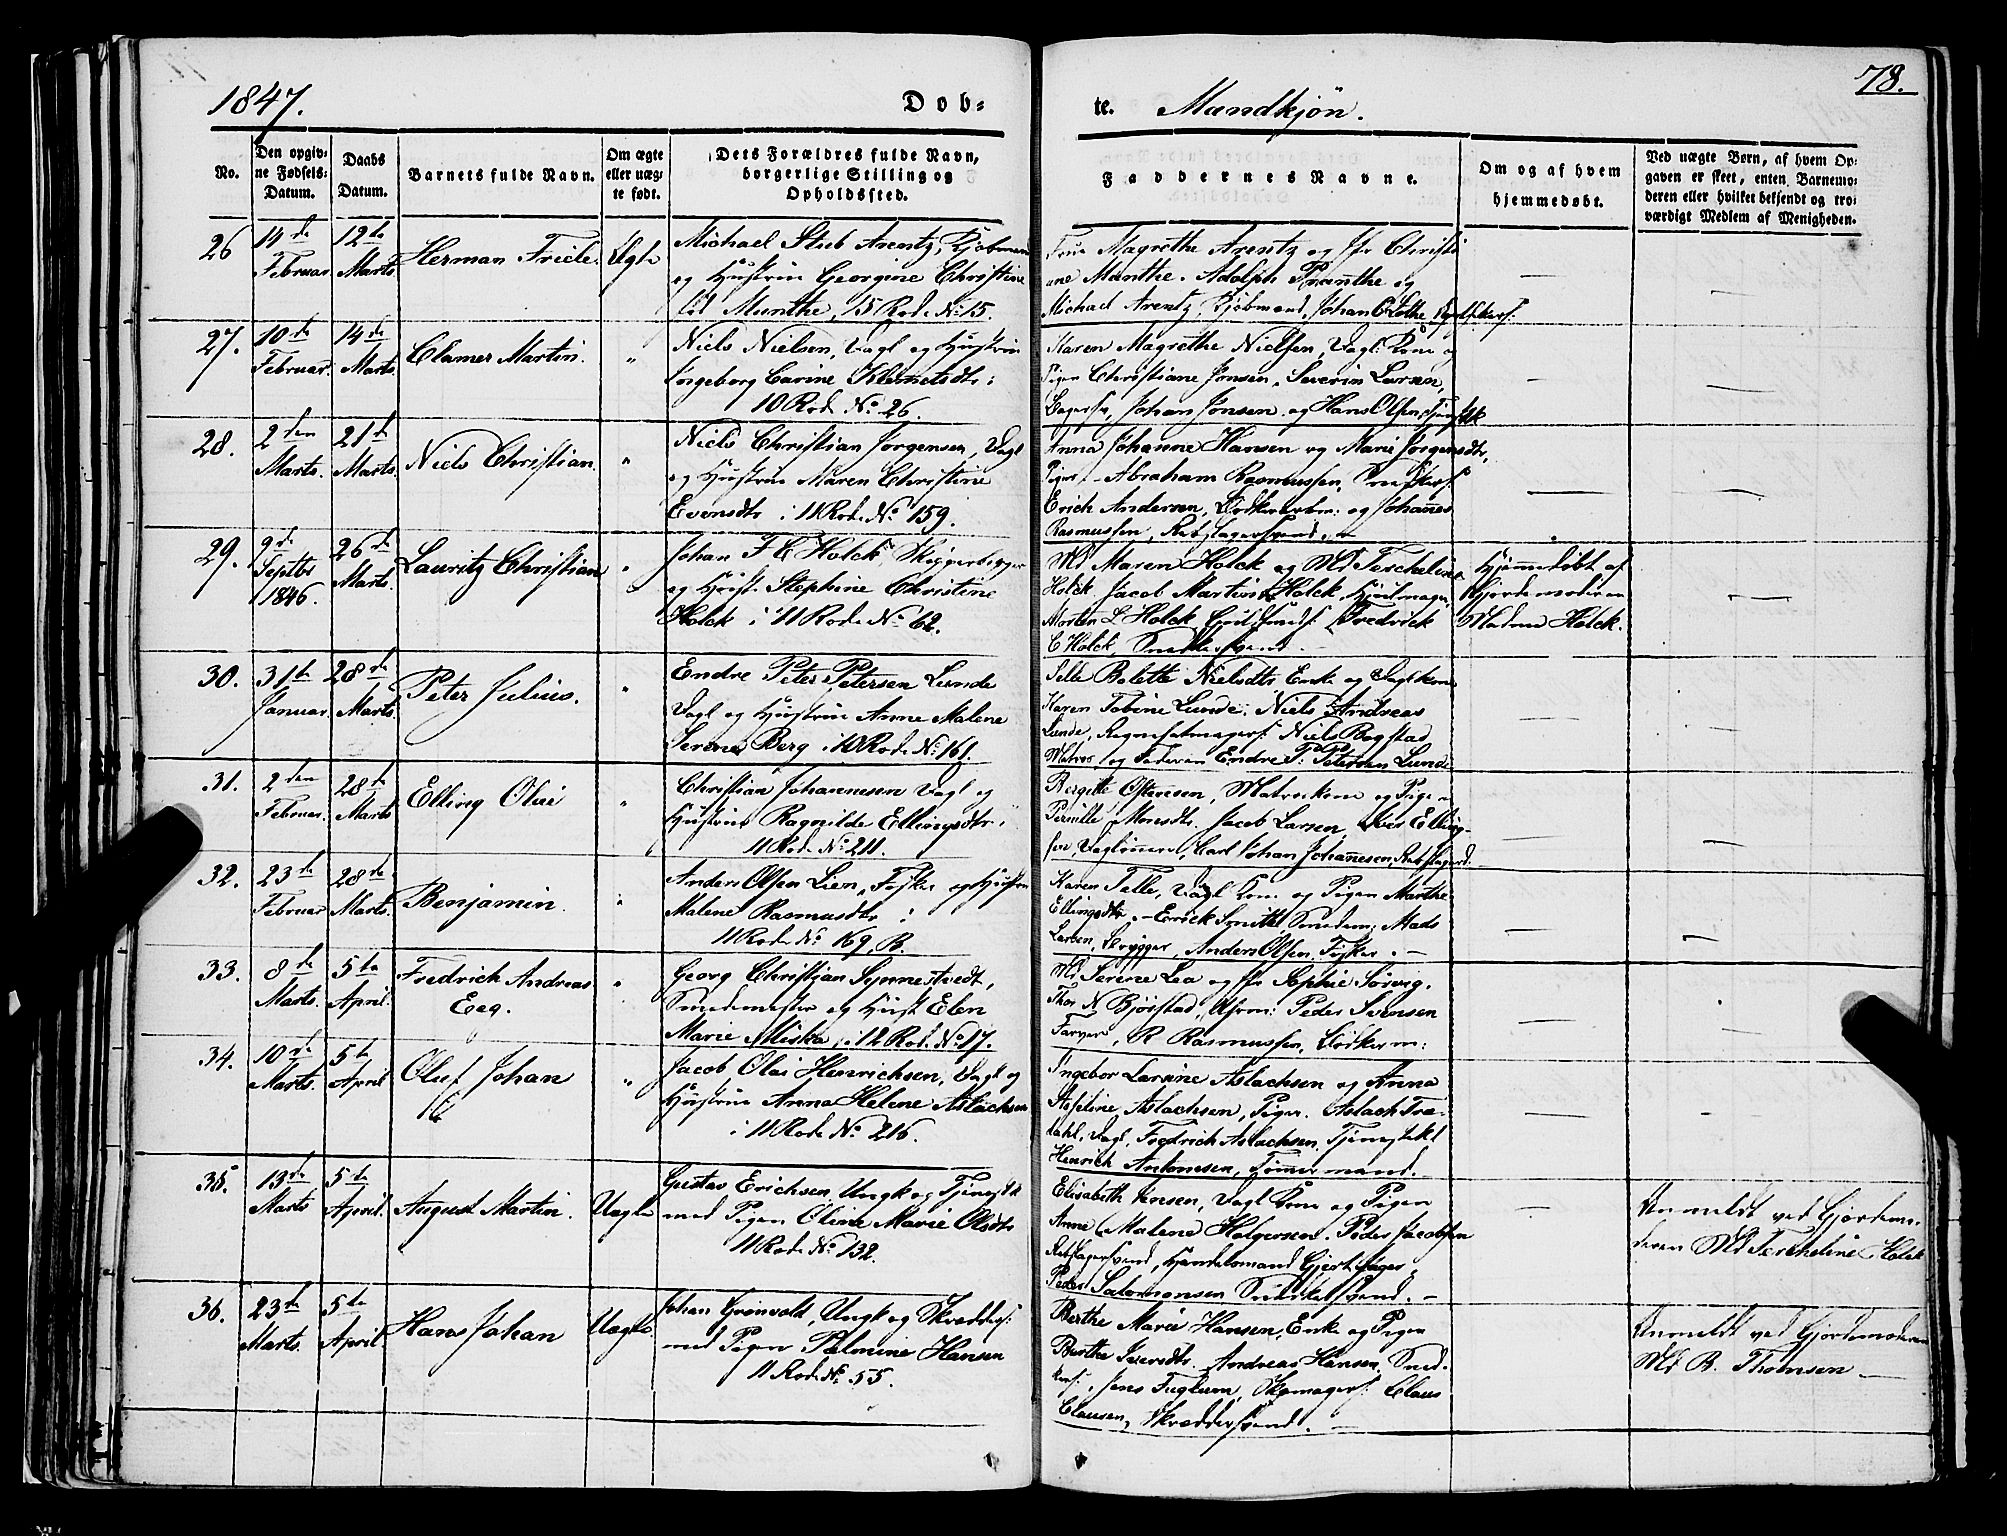 1847.
Dob-
te. Mandkjön.
78.
No.
Den opgiv-
ne Fødsels-
Datum.
Daabs
Datum.
Barnets fulde Navn.
Om ægte
eller uæg-
te født.
Dets Forældres fulde Navn,
borgerlige Stilling og
Opholdssted.
Faddernes Navne.
Om og af hvem
hjemmedøbt.
Ved uægte Børn, af hvem Op-
gaven er skeet, enten Barnemo-
deren eller hvilket bekjendt og tro-
værdigt Medlem af Menigheden.
26 14de Februar 12te Marts Herman Friele. Ægte
Michael Stub Arentz, Kjøbmand
og Hustrue Georgine Christine
Munthe, 15 Rode No 15.
Frue Magrethe Arentz og Christi
ane Munthe. Adolph Munthe og
Michael Arentz, Kjøbmand, Johan
—
—
27. 10de Februar. 14de Marts. Clamer Martin. "
Niels Nielsen, Vagl og Hustrue
Ingeborg Carine Klemetsdtr i
10 Rode No 26.
Karen Magrethe Nielsen, Vagl: Kone og
Pigen Christiane Jonsen, Severin Larsen,
Johan Jonsen og Hans Olsen,
—
—
28. 2den Marts. 21de Marts. Niels Christian. "
Niels Christian Jørgensen, Vagl
og Hustrue Maren Christine
Evensdtr i 11 Rode No 159.
Anna Johanne Hansen og Marie Jørgensdtr,
Piger — Abraham Rasmussen,
Erich Andersen, og Johannes
Rasmussen, Rebslagersvend. —
—
—
29. 9de Septbr 1846. 26de Marts. Lauritz Christian "
Johan F C Holck, Skibsbygger
og Hust. Stephine Christine
Holck i 11 Rode No 62.
Md Maren Holck og Md Tercheline
Holck. Jacob Martin Holck, Hjulmager,
Morten L Holck, Fredrick
C Holck, Snedkersvend. —
Hjemmedøbt af
Gjordemoderen
Madme Holck.
—
30. 31te Januar. 28de Marts. Peter Julius. "
Endre Peter Petersen Lunde
Vagl og Hustrue Anne Malene
Serene Berg i 10 Rode No 161.
Bolette Nielsdtr Enke og Vagl kone
Karen Tobine Lunde. Niels Andreas
Lunde, Niels Bogstad
Matros, og Faderen Endre P: Petersen Lunde
—
—
31. 2den Februar. 28de Marts Elling Olai "
Christian Johannesen Vagl og
Hustrue Ragnilde Ellingsdtr i
11 Rode No 211.
Bergitte Ostensen, Matroskone og Pige
Pernille Monsdtr, Jacob Larsen, Iver Elling-
sen, Carl Johan Johannesen, Rebslagersd.
—
—
32. 23de Februar 28de Marts. Benjamin. "
Anders Olsen Lien, Fisker og Hustrue
Malene Rasmusdtr i
11 Rode No 169, B.
Karen Telle, Vagl Kone og Pigen Marthe
Ellingsdtr. — Erick Smith, Smedem: Mads
Larsen, Brygger, Anders Olsen Fisker. —
—
—
33. 8de Marts. 5te April. Fredrich Andreas
Eeg. "
Georg Christian Synnestvedt,
Smedemester og Hust Elen
Marie Miska, i 12 Rode No 17.
Md Serene Lea og Sophie Sørvig.
Thor N Bjørstad, Peder Svensen
Farver, R Rasmussen, Bødkerm:
—
34. 10de Marts. 5te April Oluf Johan "
Jacob Olai Henrichsen, Vagl og
Hustrue Anna Helene Aslachsen
i 11 Rode No 216.
Ingebor Lavine Aslachsen og Anna
Aslachsen, Piger. Aslach Træ-
dahl, Vagl, Fredrich Aslachsen,
Henrich Antonsen, Tømmermand.
—
—
35. 13de Marts 5te April. August Martin. Uægte
Gustav Erichsen, Ungk og
med Pigen Oline Marie Olsdtr
11 Rode No 132.
Elisabeth Jensen, Vagl Kone og Pigen
Anne Malene Holgersen. Peder Jacobsen
Rebslagersvend, Handelsmand Gjert
Peder Salomonsen Snedkersvend. —
—
Anmeldt ved Gjordemo-
deren Md Tercheline Holck
36. 23de Marts. 5te April. Hans Johan Uægte
Johan Grønvold, Ungk og Skræders:
med Pigen Palmine Hansen
11 Rode No 55.
Berthe Marie Hansen, Enke og Pigen
Berthe Andreas Hansen, Sned-
kers:, Jens Fuglum, Skomagers: Claus
Clausen, Skræddersvend. —
—
Anmeldt ved Gjordemoderen
Md B. Thomsen —